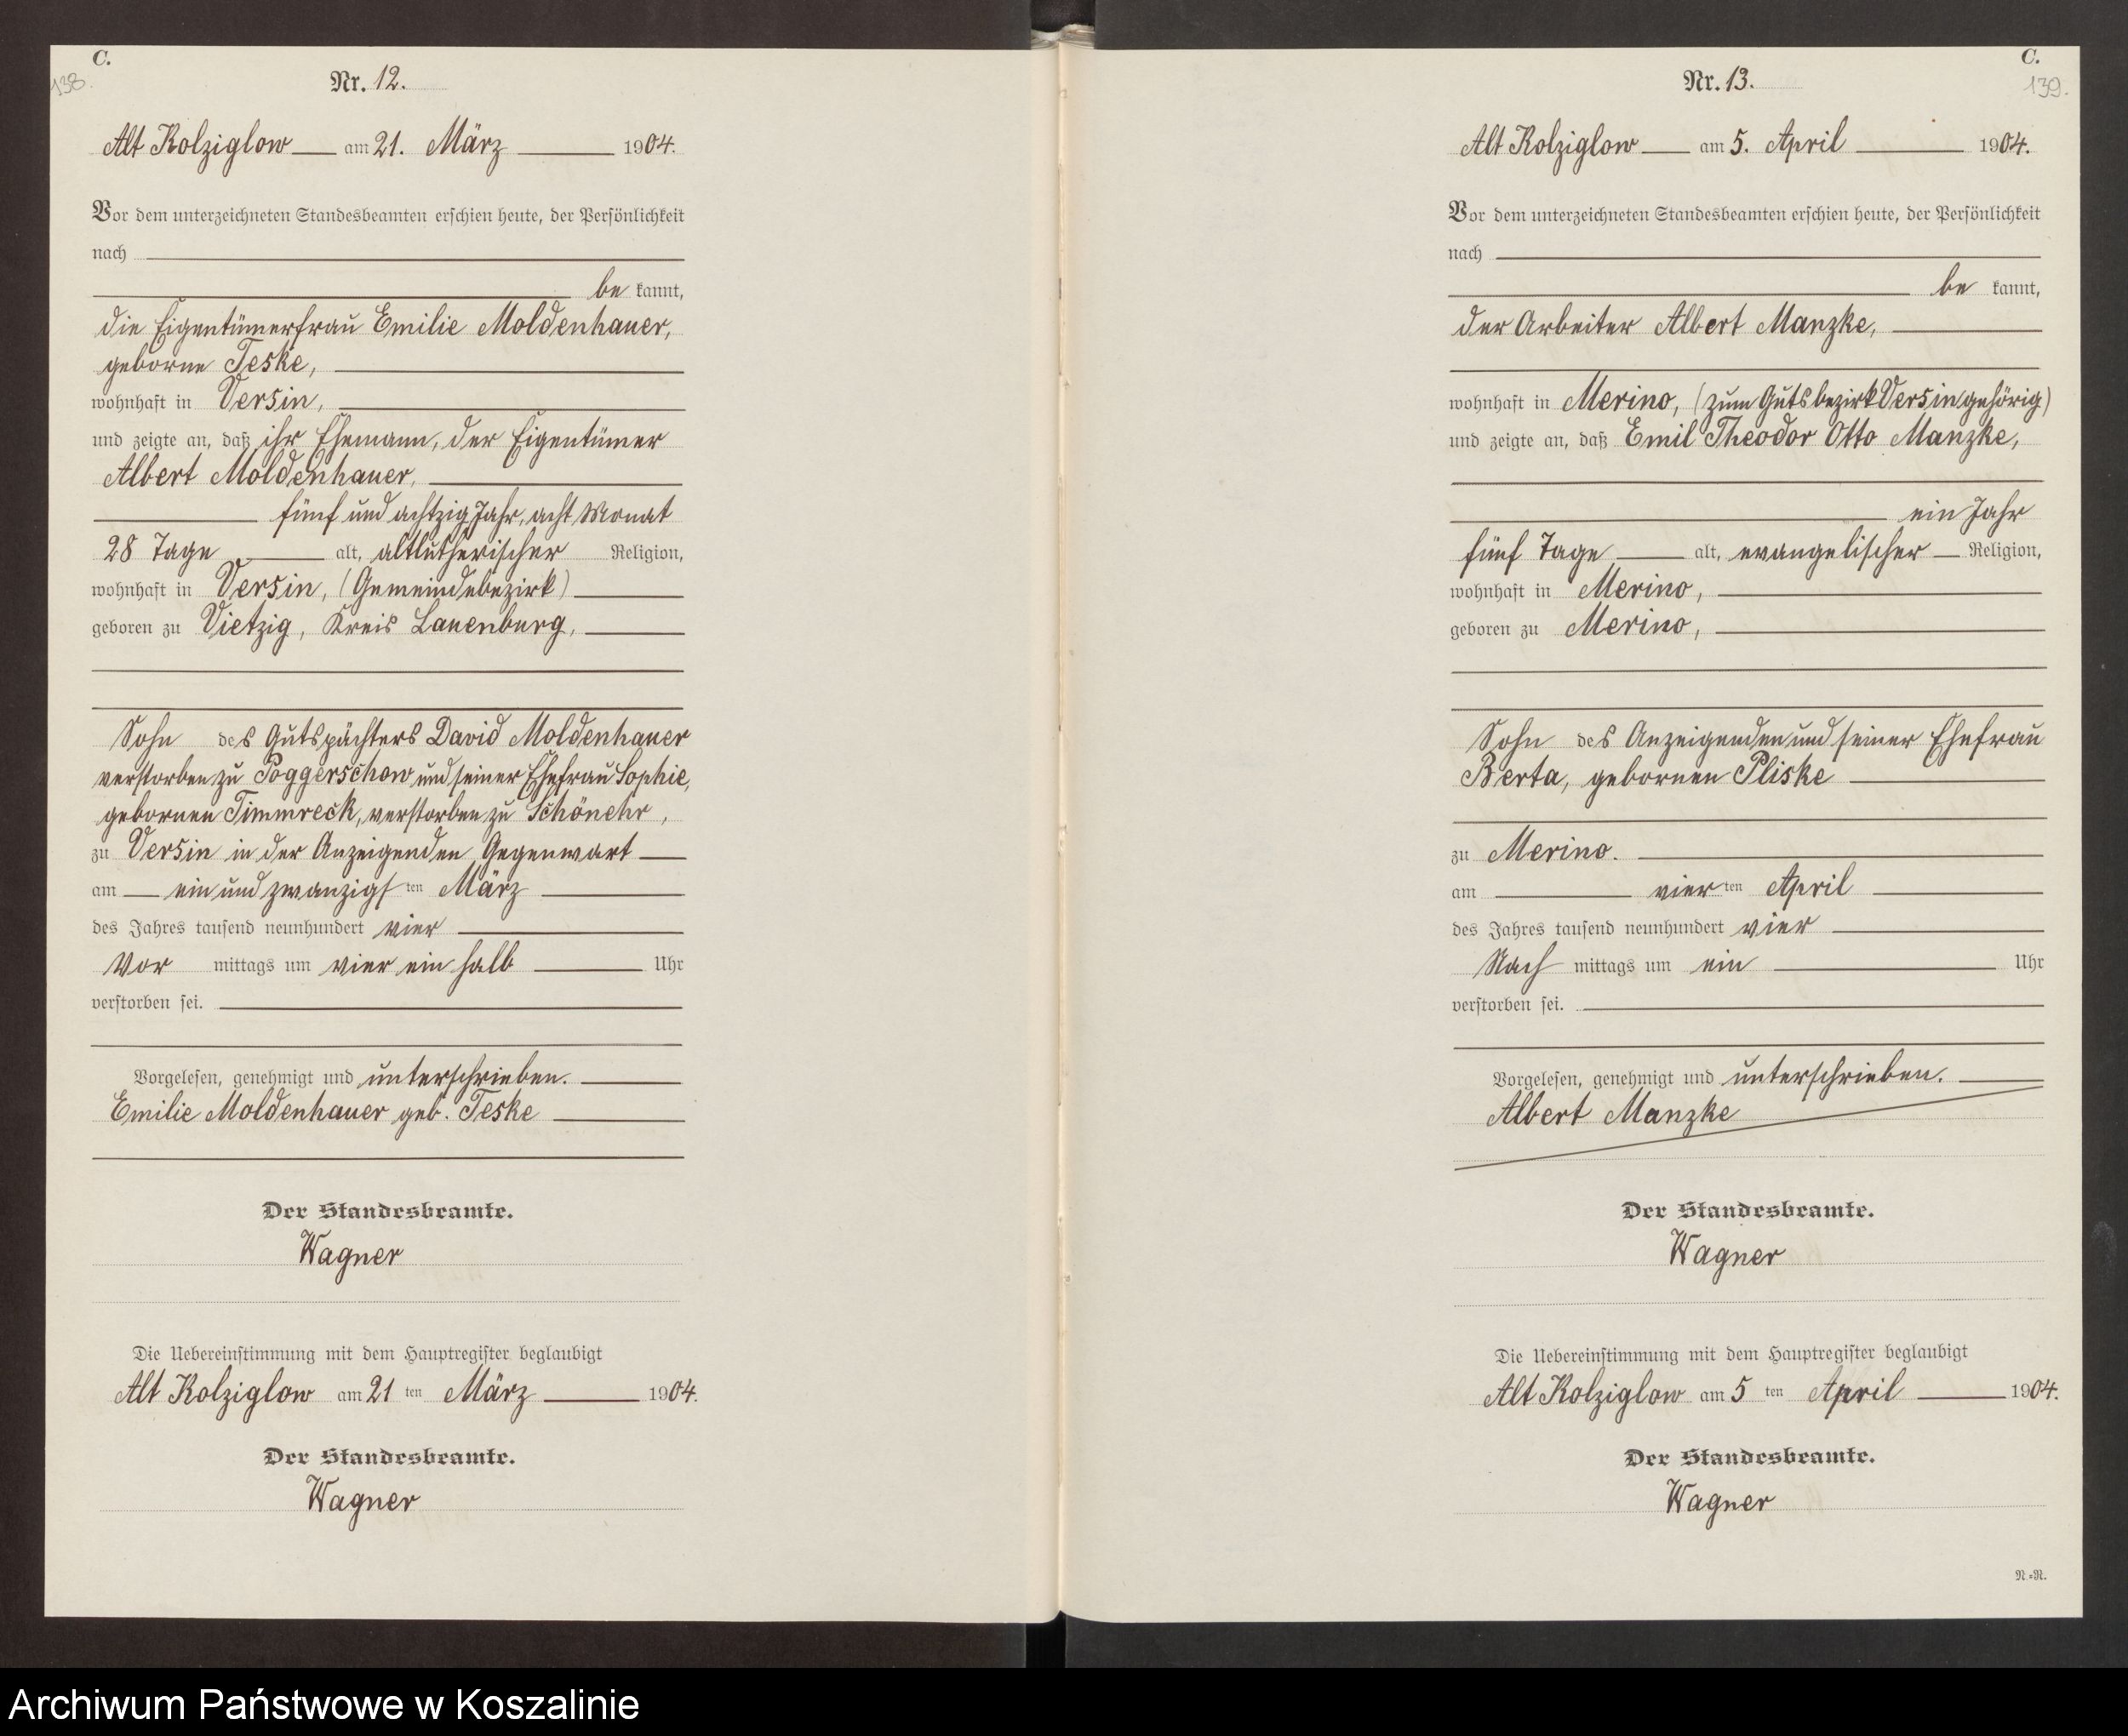 C.
138.
Nr. 12.
Alt Kolziglow am 21. März 1904.
Vor dem unterzeichneten Standesbeamten erschien heute, der Persönlichkeit
nach
be kannt,
die Eigentümerfrau Emilie Moldenhauer,
geborne Teske,
wohnhaft in Versin,
und zeigte an, daß ihr Ehemann, der Eigentümer
Albert Moldenhauer,
fünf und achtzig Jahr, acht Monat
28 Tage alt, altlutherischer Religion,
wohnhaft in Versin, (Gemeindebezirk)
geboren zu Vietzig, Kreis Lauenburg,
Sohn des Gutspächters David Moldenhauer
verstorben zu Poggerschow und seiner Ehefrau Sophie,
gebornen Timmreck, verstorben zu Schönehr,
zu Versin in der Anzeigenden Gegenwart
am ein und zwanzigsten März
des Jahres tausend neunhundert vier
Vor mittags um vier ein halb Uhr
verstorben sei.
Vorgelesen, genehmigt und unterschrieben.
Emilie Moldenhauer geb. Teske
Der Standesbeamte.
Wagner
Die Uebereinstimmung mit dem Hauptregister beglaubigt
Alt Kolziglow am 21 ten März 1904.
Der Standesbeamte.
Wagner
C.
139.
Nr. 13.
Alt Kolziglow am 5. April 1904.
Vor dem unterzeichneten Standesbeamten erschien heute, der Persönlichkeit
nach
be kannt,
der Arbeiter Albert Manzke,
wohnhaft in Merino, (zum Gutsbezirk Versin gehörig)
und zeigte an, daß Emil Theodor Otto Manzke,
ein Jahr
fünf Tage alt, evangelischer Religion,
wohnhaft in Merino,
geboren zu Merino,
Sohn des Anzeigenden und seiner Ehefrau
Berta, gebornen Pliske
zu Merino.
am vierten April
des Jahres tausend neunhundert vier
Nach mittags um ein Uhr
verstorben sei.
Vorgelesen, genehmigt und unterschrieben.
Albert Manzke
Der Standesbeamte.
Wagner
Die Uebereinstimmung mit dem Hauptregister beglaubigt
Alt Kolziglow am 5 ten April 1904.
Der Standesbeamte.
Wagner
N=R.
Archiwum Państwowe w Koszalinie